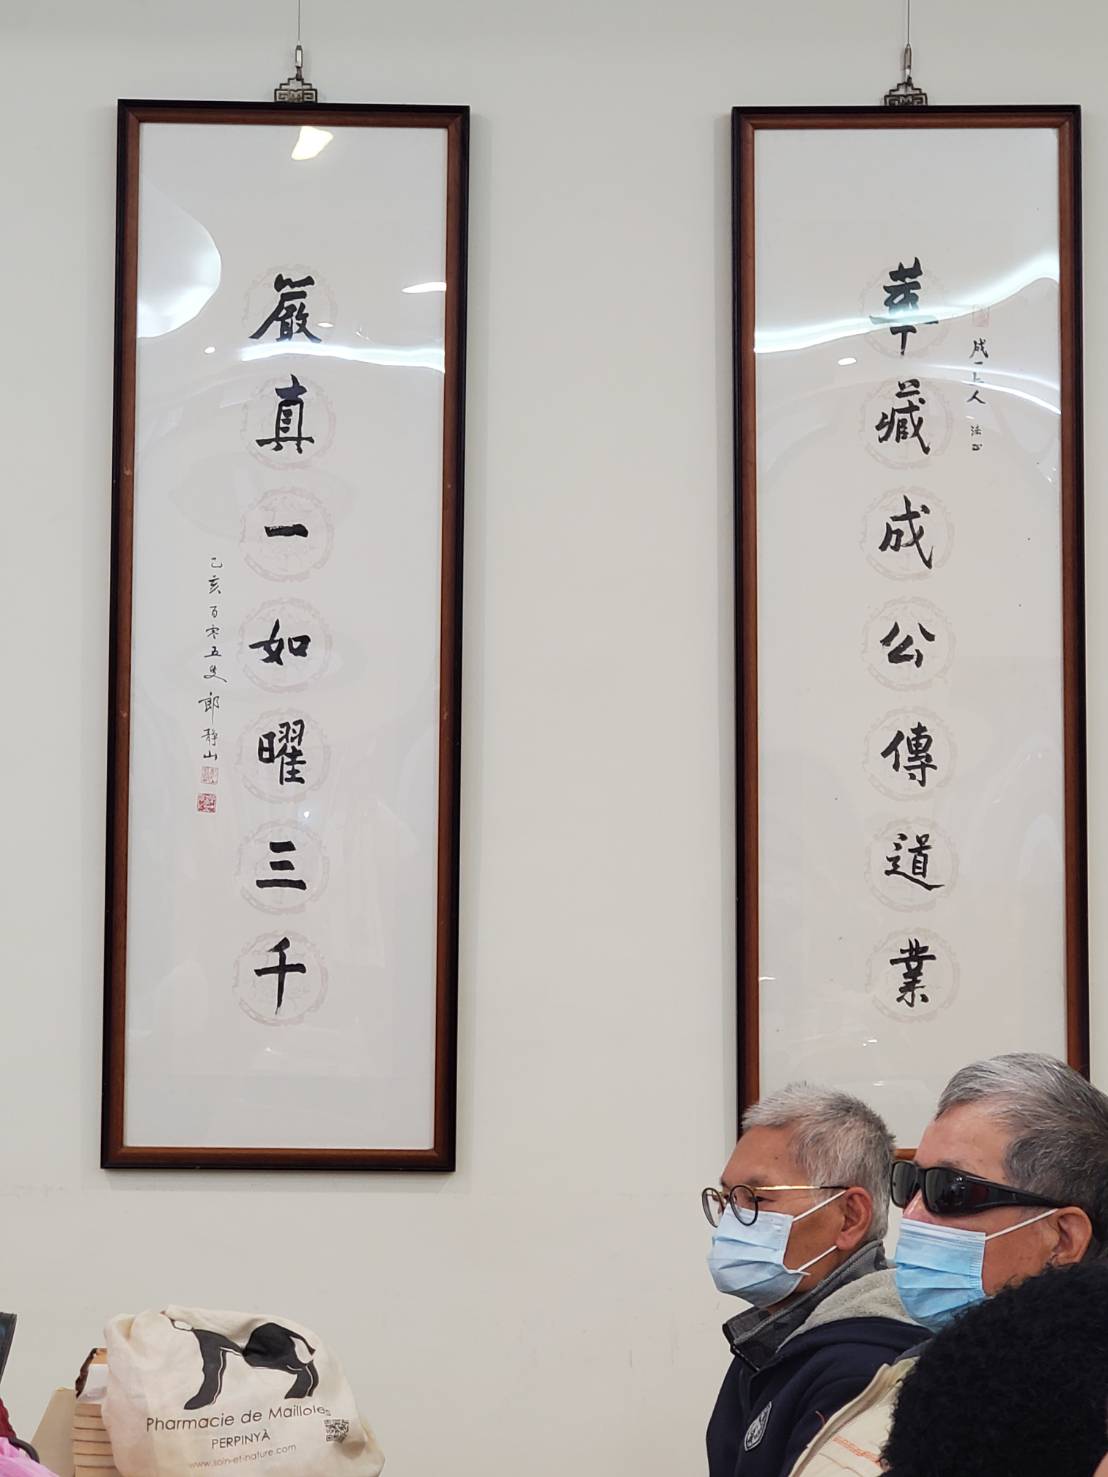 華藏成公傳道業
成一上人 法正
嚴真一如曜三千
乙亥百零五叟 郎靜山
Pharmacie de Mailloles
PERPINYÀ
www.soin-et-nature.com